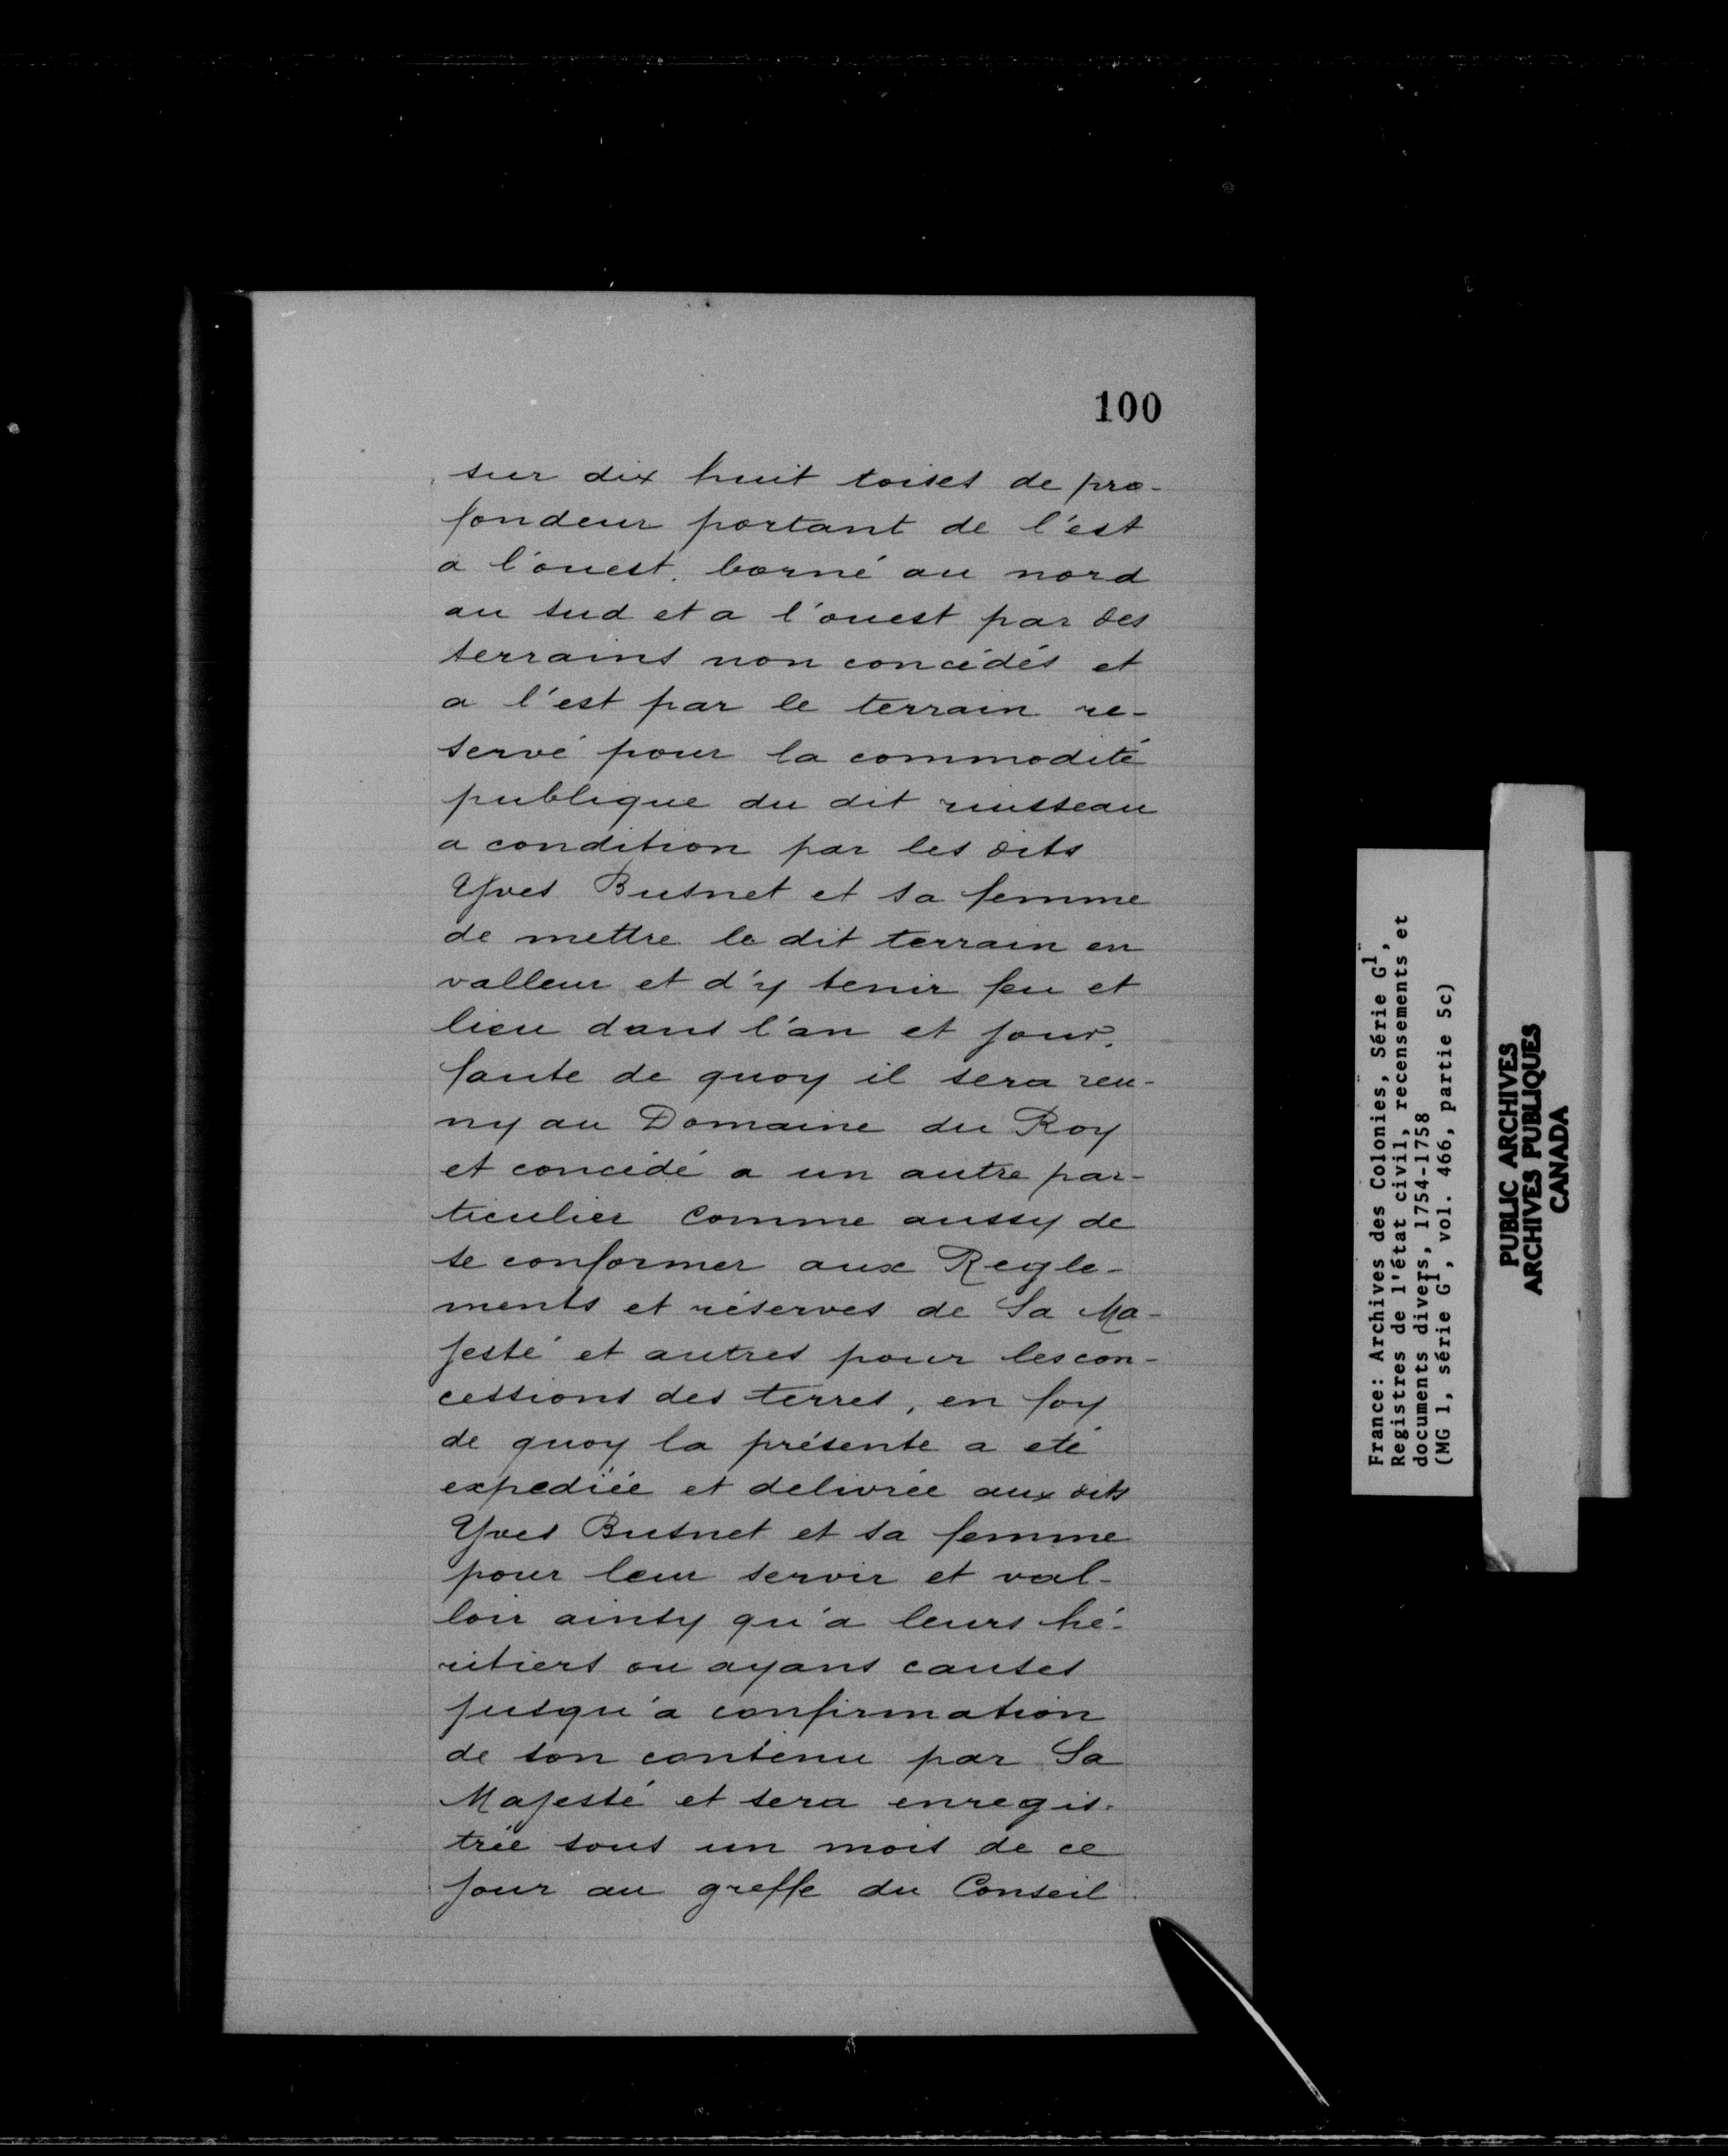 100
sur dix huit toises de pro-
fondeur portant de l'est
a l'ouest. borné au nord
au sud et a l'ouest par des
terrains non concédés et
a l'est par le terrain re-
servé pour la commodité
publique du dit ruisseau
a condition par les dits
Yves Busnet et sa femme
de mettre le dit terrain en
valleur et d'y tenir feu et
lieu dans l'an et jour.
faute de quoy il sera reu-
ny au Domaine du Roy
et concédé a un autre par-
ticulier comme aussy de
se conformer aux Regle-
ments et réserves de Sa Ma-
jesté et autres pour les con-
cessions des terres, en foy
de quoy la présente a eté
expediée et delivrée aux dits
Yves Busnet et sa femme
pour leur servir et val-
loir ainsy qu'a leurs hé-
ritiers ou ayans causes
jusqu'a confirmation
de son contenu par Sa
Majesté et sera enregis-
trée sous un mois de ce
jour au greffe du Conseil
France: Archives des Colonies, Série G1,
Registres de l'état civil, recensements et
documents divers, 1754-1758
(MG 1, série G1, vol. 466, partie 5c)
PUBLIC ARCHIVES
ARCHIVES PUBLIQUES
CANADA